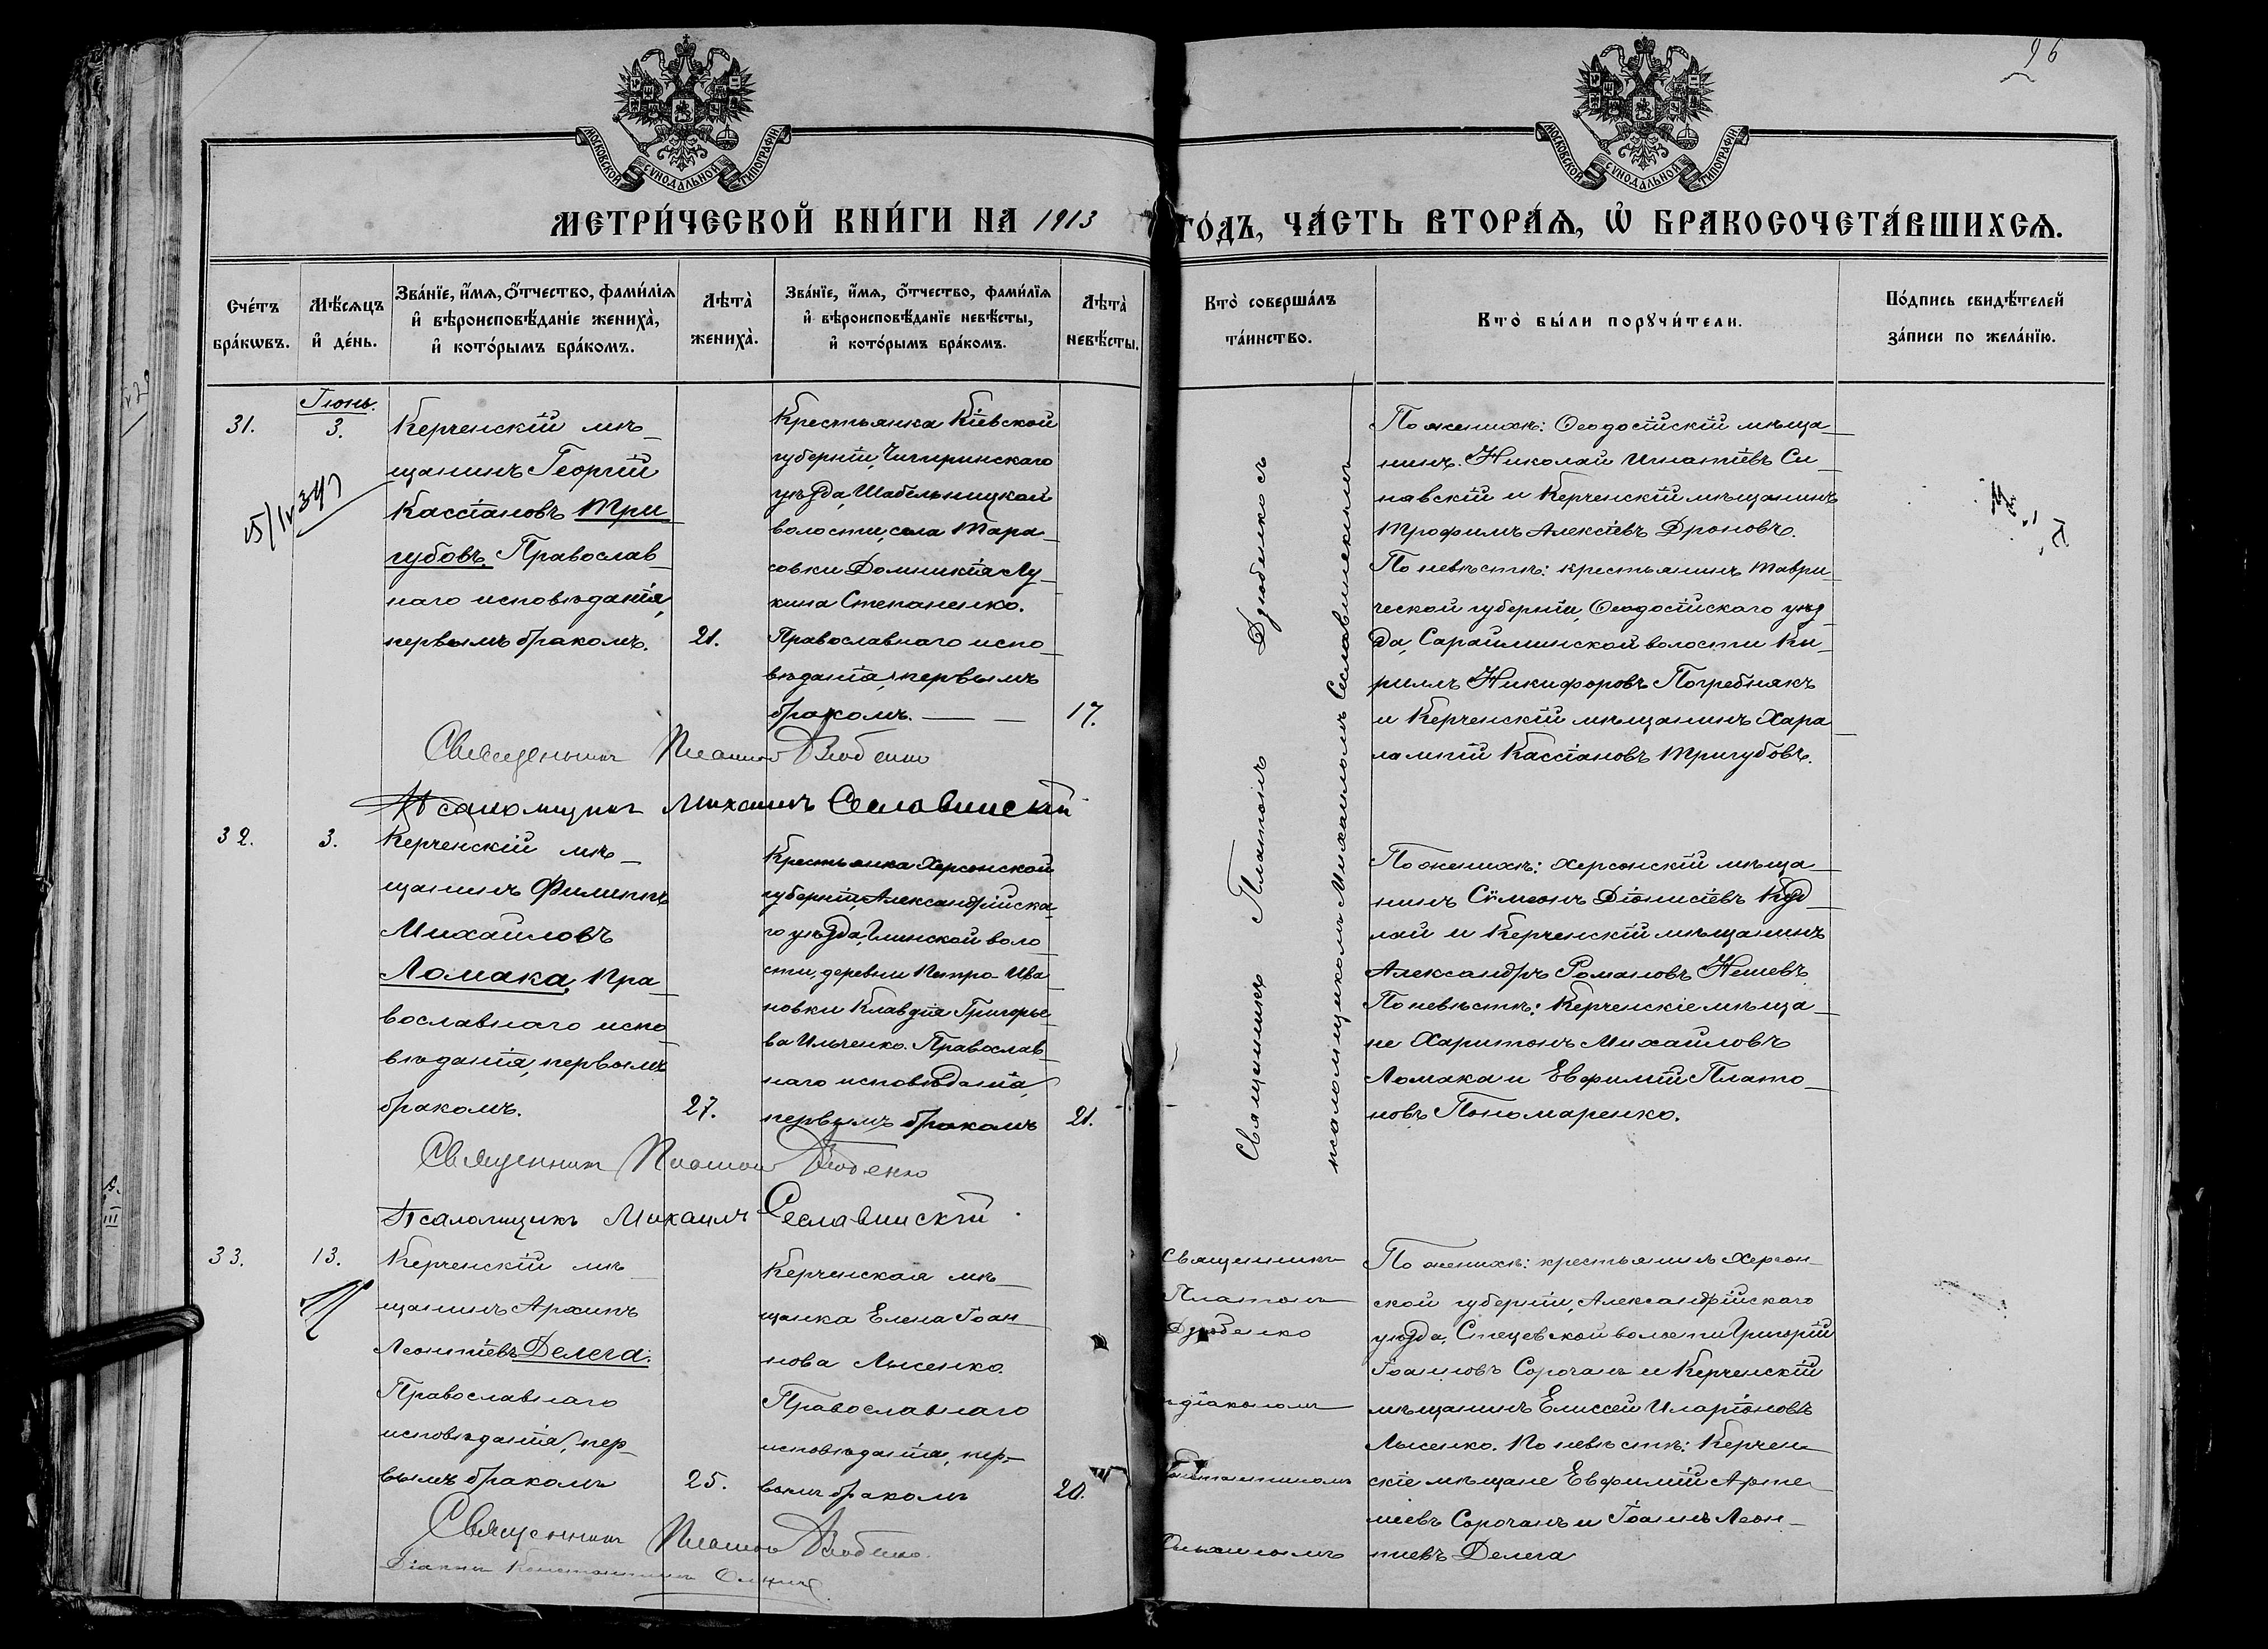 96
МОСКОВСКОЙ СѴНОДАЛЬНОЙ ТИПОГРАФІИ
МОСКОВСКОЙ СѴНОДАЛЬНОЙ ТИПОГРАФІИ
МЕТРИ́ЧЕСКОЙ КНИ́ГИ НА 1913 ГО́ДЪ, ЧА́СТЬ ВТОРА́Ѧ, Ѽ БРАКОСОЧЕТА́ВШИХСѦ.
Сче́тъ
бра́кѡвъ.
Мѣ́сѧцъ
и҆ де́нь.
Зва́нїе, и҆́мѧ, ѻ҆́тчество, фами́лїѧ
и҆ вѣроисповѣ́данїе жениха̀,
и҆ кото́рымъ бра́комъ.
Лѣта̀
жениха̀.
Зва́нїе, и҆́мѧ, ѻ҆́тчество, фами́лїѧ
и҆ вѣроисповѣ́данїе невѣ́сты,
и҆ кото́рымъ бра́комъ.
Лѣта̀
невѣ́сты.
Кто̀ соверша́лъ
та́инство.
Кто̀ бы́ли порꙋчи́тели.
По́дпись свидѣ́телей
за́писи по жела́нїю.
31.
Іюнь.
3.
Керченскій мѣ-
щанинъ Георгій
Кассіановъ Три-
губовъ, Православ-
наго исповѣданія,
первымъ бракомъ.
21.
Крестьянка Кіевской
губерніи, Чигиринскаго
уѣзда, Шабельницкой
волости, села Тара-
совки Домникія Лу-
кина Степаненко.
Православнаго испо-
вѣданія, первымъ
бракомъ.
17.
Священникъ Платонъ Дзюбенко съ
псаломщикомъ Михаиломъ Сеславинскимъ
По женихѣ: Ѳеодосійскій мѣща-
нинъ Николай Игнатіевъ Си-
навскій и Керченскій мѣщанинъ
Трофимъ Алексіевъ Дроновъ.
По невѣстѣ: крестьянинъ Таври-
ческой губерніи, Ѳеодосійскаго уѣз-
да, Сарайминской волости Ки-
риллъ Никифоровъ Погребнякъ
и Керченскій мѣщанинъ Хара-
лампій Кассіановъ Тригубовъ.
Священникъ Платонъ Дзюбенко
Псаломщикъ Михаилъ Сеславинскій
32.
3.
Керченскій мѣ-
щанинъ Филиппъ
Михаиловъ
Ломака, Пра-
вославнаго испо-
вѣданія, первымъ
бракомъ.
27.
Крестьянка Херсонской
губерніи, Александрійска-
го уѣзда, Глинской воло-
сти, деревни Петро-Ива-
новки Клавдія Григорье-
ва Ильченко. Православ-
наго исповѣданія,
первымъ бракомъ
21.
По женихѣ: Херсонскій мѣща-
нинъ Сѵмеонъ Діонисіевъ Куд-
лай и Керченскій мѣщанинъ
Александръ Романовъ Нешевъ.
По невѣстѣ: Керченскіе мѣща-
не Харитонъ Михаиловъ
Ломака и Евфимій Плато-
новъ Пономаренко.
Священникъ Платонъ Дзюбенко
Псаломщикъ Михаилъ Сеславинскій.
33.
13.
Керченскій мѣ-
щанинъ Архипъ
Леонтіевъ Делега.
Православнаго
исповѣданія, пер-
вымъ бракомъ
25.
Керченская мѣ-
щанка Елена Іоан-
нова Лысенко.
Православнаго
исповѣданія, пер-
вымъ бракомъ
20.
Священникъ
Платонъ
Дзюбенко
діакономъ
Константиномъ
По женихѣ: крестьянинъ Херсон-
ской губерніи, Александрійскаго
уѣзда, Стецевской волости Григорій
Іоанновъ Сорочанъ и Керченскій
мѣщанинъ Елиссей Иларіоновъ
Лысенко. По невѣстѣ: Керчен-
скіе мѣщане Евфимій Арте-
міевъ Сорочанъ и Іоаннъ Леон-
тіевъ Делега
Священникъ Платонъ Дзюбенко.
Діаконъ Константинъ